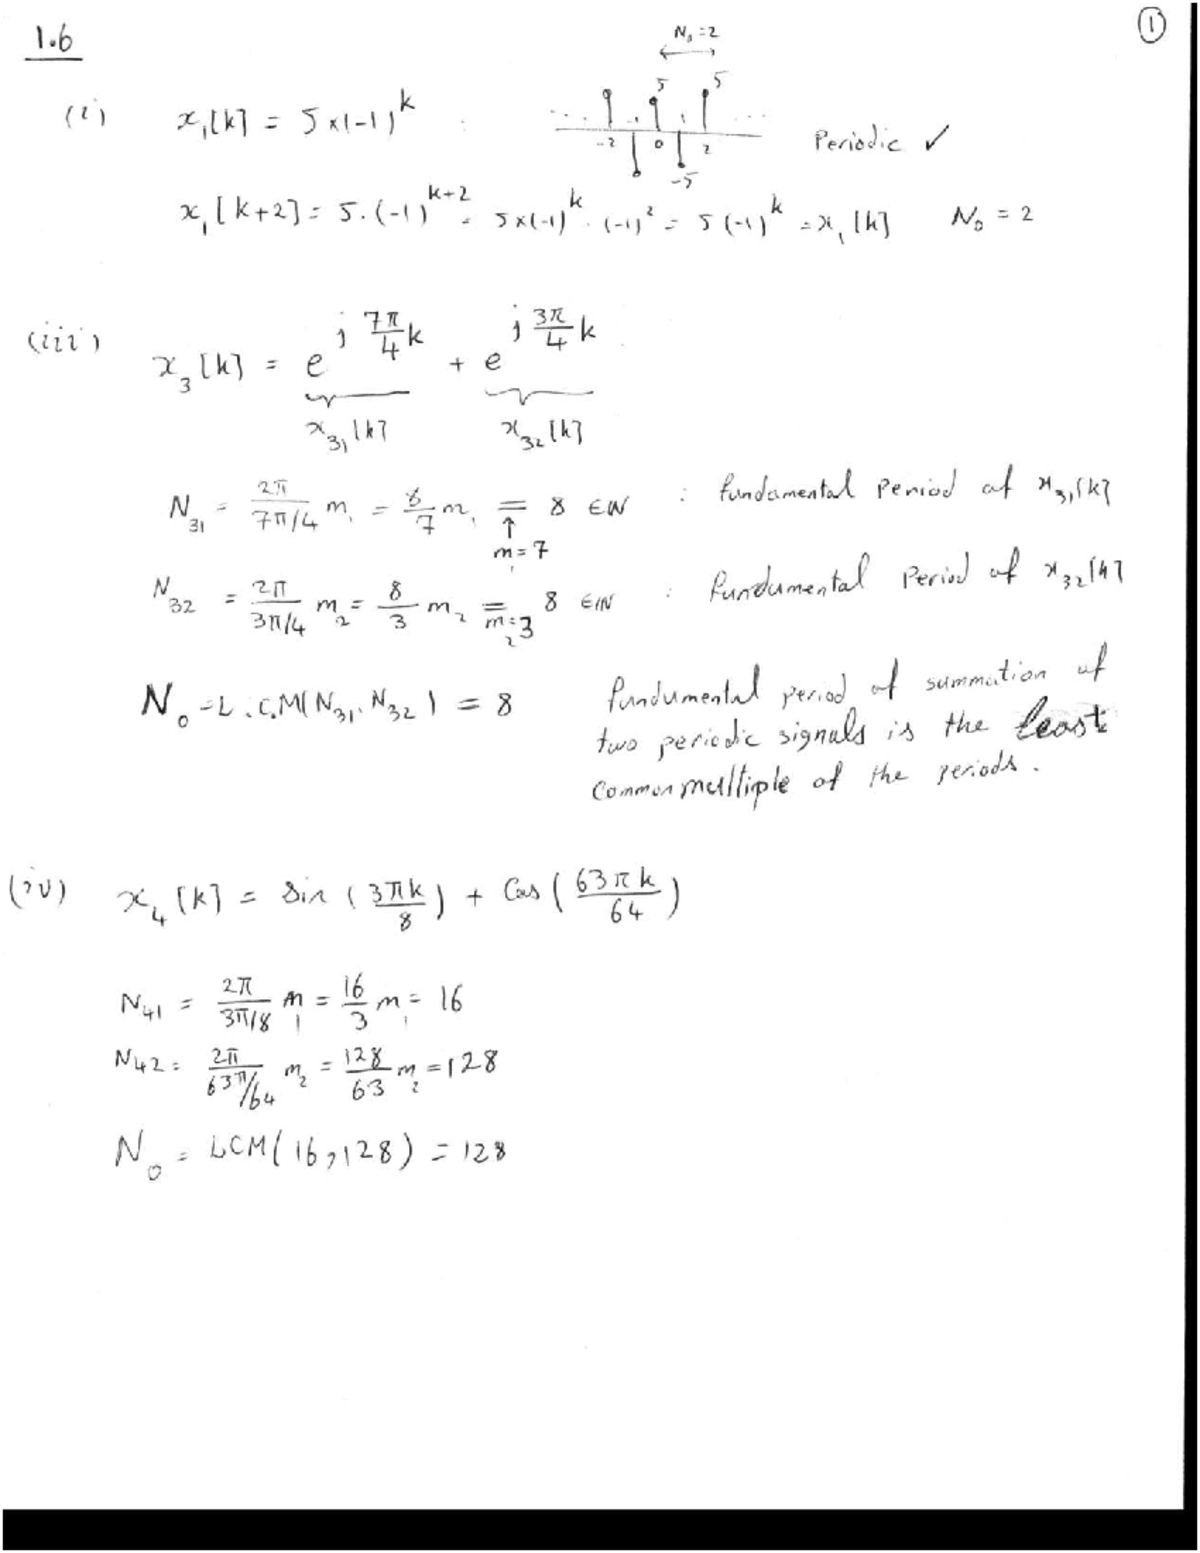 ①
1.6
N₀ = 2
(i) x₁[k] = 5×(-1)^k
5 5
... -2 0 2 ...
-5
Periodic ✓
x₁[k+2] = 5·(-1)^(k+2) = 5×(-1)^k · (-1)² = 5(-1)^k = x₁[k] N₀ = 2
(iii) x₃[k] = e^(j 7π/4 k) + e^(j 3π/4 k)
x₃₁[k] x₃₂[k]
N₃₁ = 2π/(7π/4) m₁ = 8/7 m₁ = 8 ∈ IN : fundamental period of x₃₁[k]
↑
m₁=7
N₃₂ = 2π/(3π/4) m₂ = 8/3 m₂ = 8 ∈ IN : fundumental Period of x₃₂[k]
m₂=3
N₀ = L.C.M(N₃₁, N₃₂) = 8 fundumental period of summation of
two periodic signals is the least
common multiple of the periods.
(iv) x₄[k] = Sin(3πk/8) + Cos(63πk/64)
N₄₁ = 2π/(3π/8) m₁ = 16/3 m₁ = 16
N₄₂ = 2π/(63π/64) m₂ = 128/63 m₂ = 128
N₀ = LCM(16,128) = 128